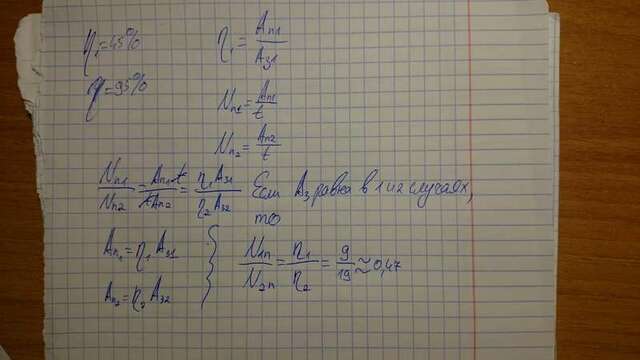 η₁=45%
η=95%
η₁ = Aп1/Aз1
Nп1 = Aп1/t
Nп2 = Aп2/t
Nп1/Nп2 = Aп1·t/tAп2 = η₁Aз1/η₂Aз2 Если Aз равна в 1 и 2 случаях,
то
Aп₁ = η₁ Aз1
Aп₂ = η₂ Aз2
N1п/N2п = η₁/η₂ = 9/19 ≈ 0,47